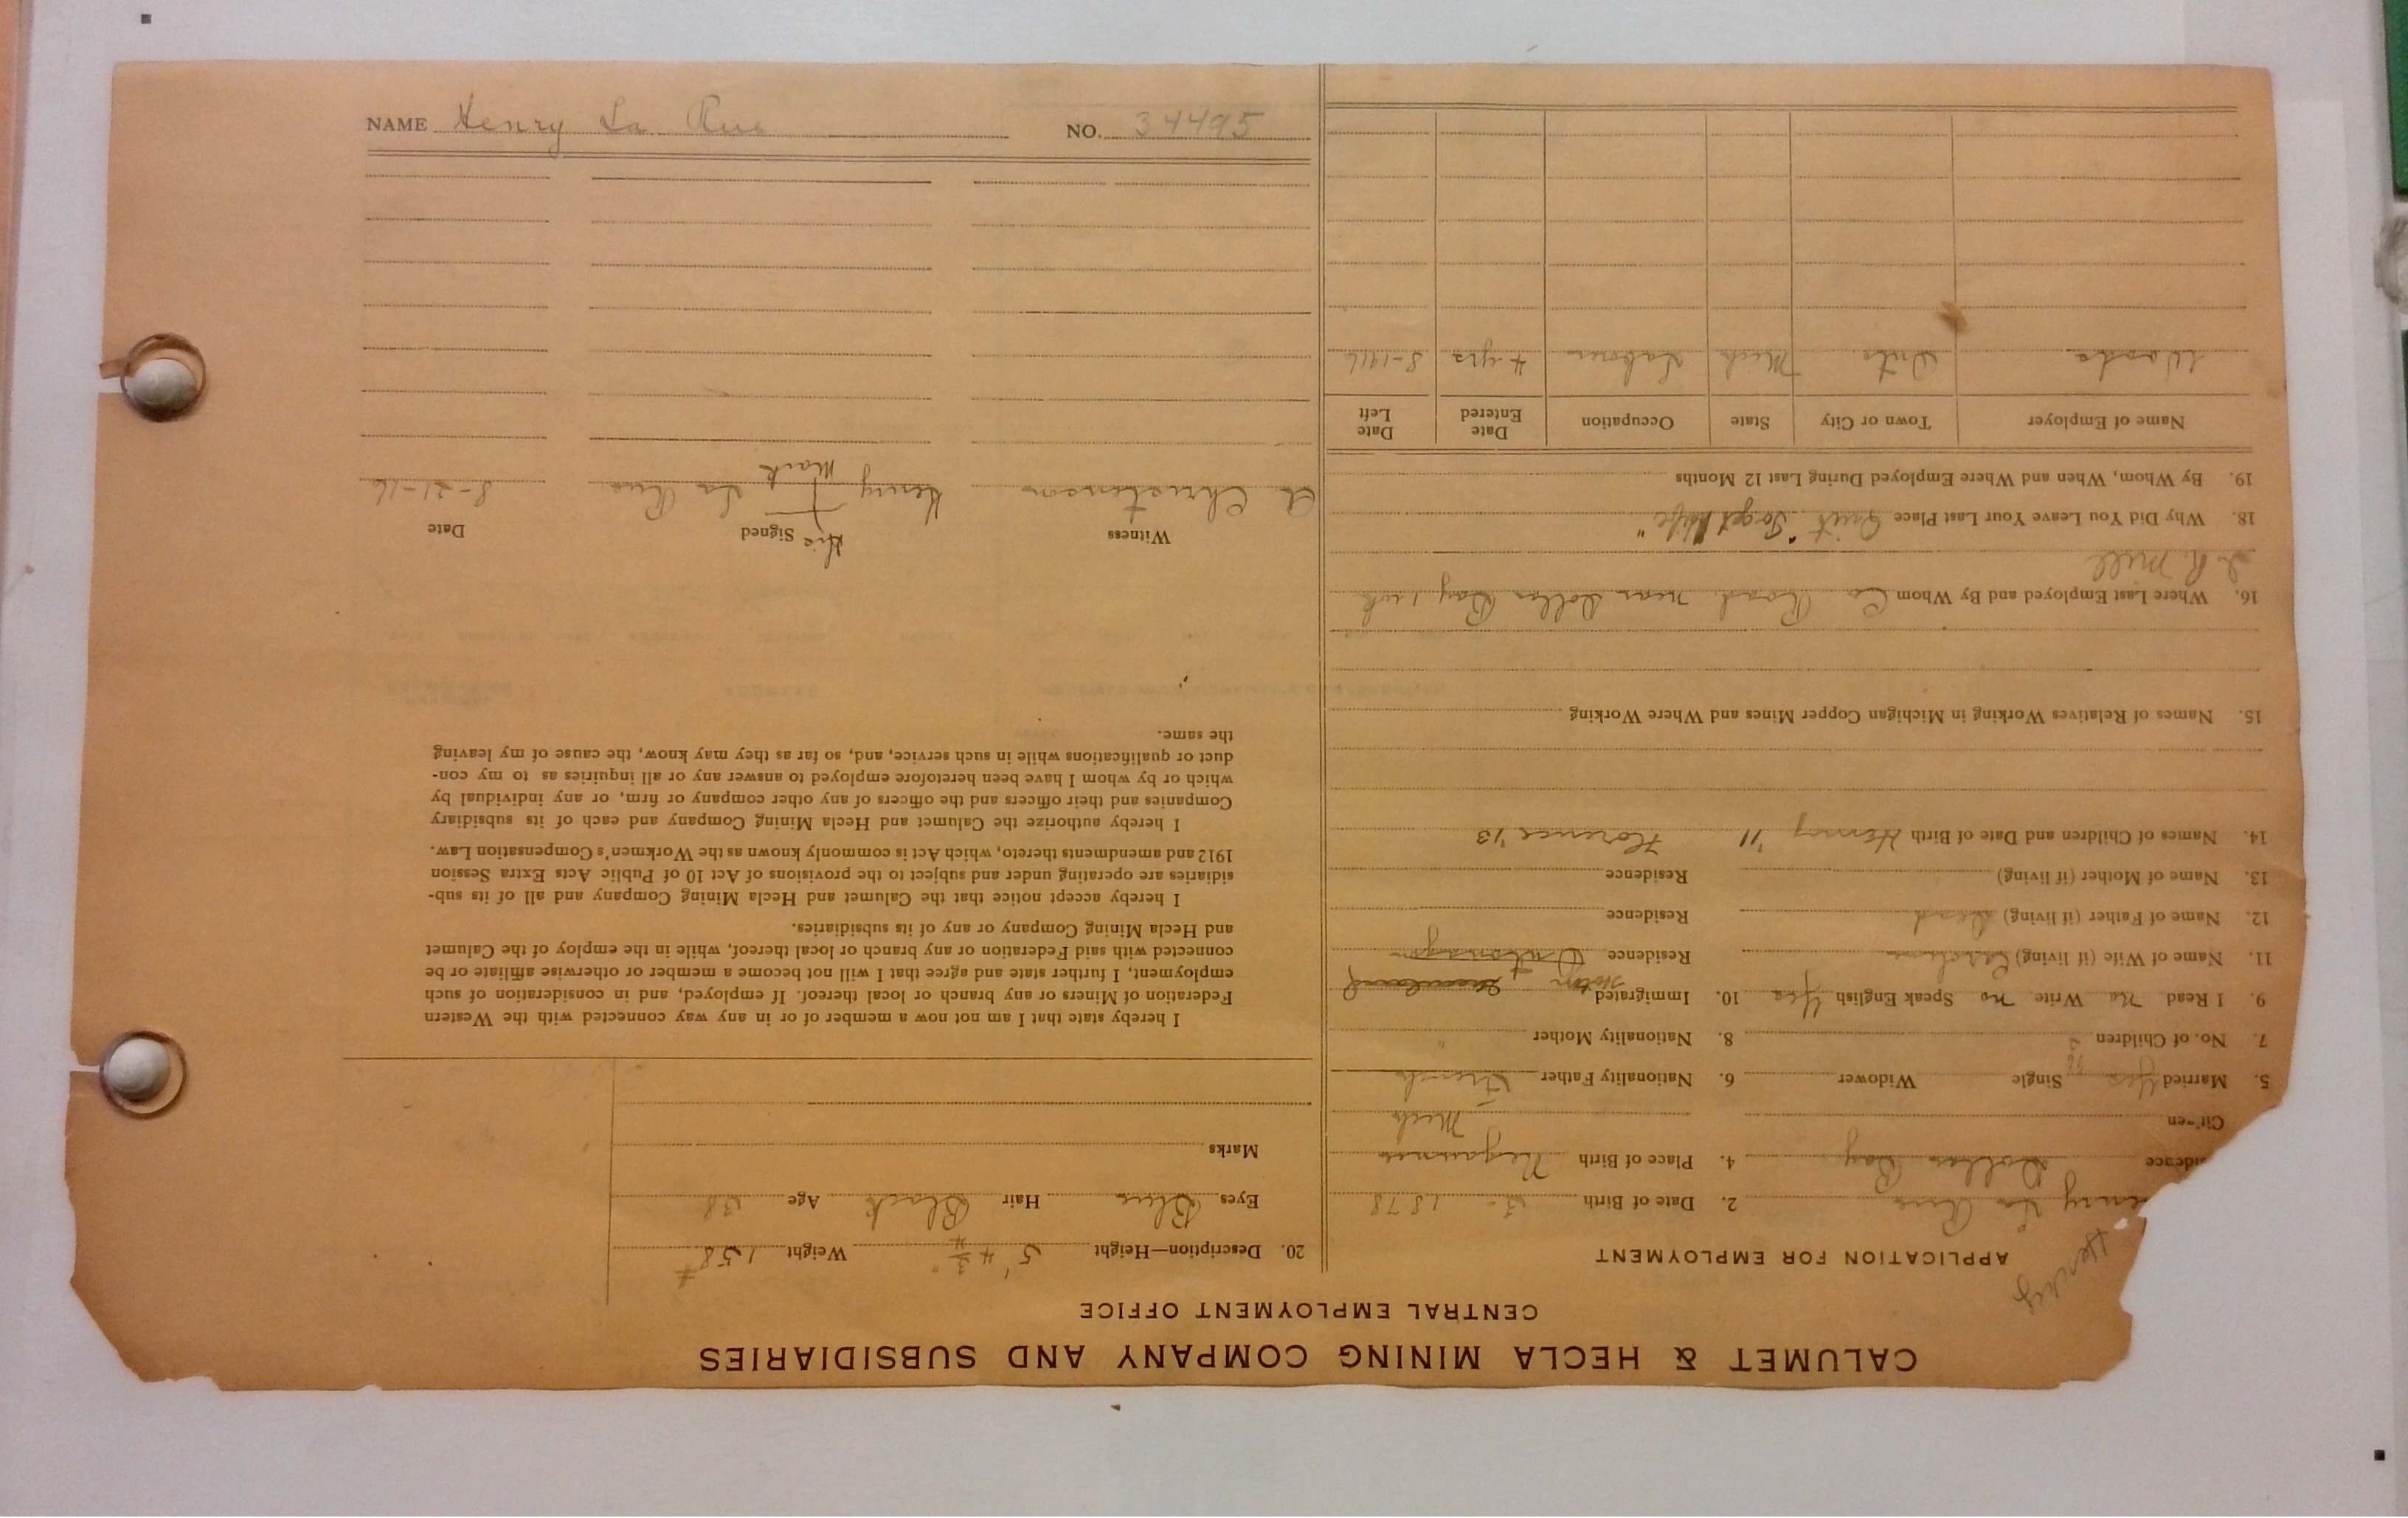 CALUMET & HECLA MINING COMPANY AND SUBSIDIARIES
CENTRAL EMPLOYMENT OFFICE
APPLICATION FOR EMPLOYMENT
Henry
enry La Rue 2. Date of Birth 3- 1878
sidence Dollar Bay 4. Place of Birth Negaunee
Citizen Mich
5. Married Yes '96 Single Widower 6. Nationality Father French
7. No. of Children 2 8. Nationality Mother "
9. I Read no Write no Speak English Yes 10. Immigrated
11. Name of Wife (if living) Residence Ontonagon
12. Name of Father (if living) Dead Residence
13. Name of Mother (if living) Residence
14. Names of Children and Date of Birth Henry '11 Florence '13
15. Names of Relatives Working in Michigan Copper Mines and Where Working
16. Where Last Employed and By Whom Co Road near Dollar Bay 1 wk
I R Mill
18. Why Did You Leave Your Last Place Quit "To get wife"
19. By Whom, When and Where Employed During Last 12 Months
Name of Employer Town or City State Occupation Date Entered Date Left
Woods Onto. Mich Laborer 4 yrs 8-1916
20. Description—Height 5' 4 3/4" Weight 158#
Eyes Blue Hair Black Age 38
Marks
I hereby state that I am not now a member of or in any way connected with the Western
Federation of Miners or any branch or local thereof. If employed, and in consideration of such
employment, I further state and agree that I will not become a member or otherwise affiliate or be
connected with said Federation or any branch or local thereof, while in the employ of the Calumet
and Hecla Mining Company or any of its subsidiaries.
I hereby accept notice that the Calumet and Hecla Mining Company and all of its sub-
sidiaries are operating under and subject to the provisions of Act 10 of Public Acts Extra Session
1912 and amendments thereto, which Act is commonly known as the Workmen's Compensation Law.
I hereby authorize the Calumet and Hecla Mining Company and each of its subsidiary
Companies and their officers and the officers of any other company or firm, or any individual by
which or by whom I have been heretofore employed to answer any or all inquiries as to my con-
duct or qualifications while in such service, and, so far as they may know, the cause of my leaving
the same.
Witness Signed Date
His
A Christensen Henry La Rue 8-21-16
Mark
NAME Henry La Rue NO. 34495